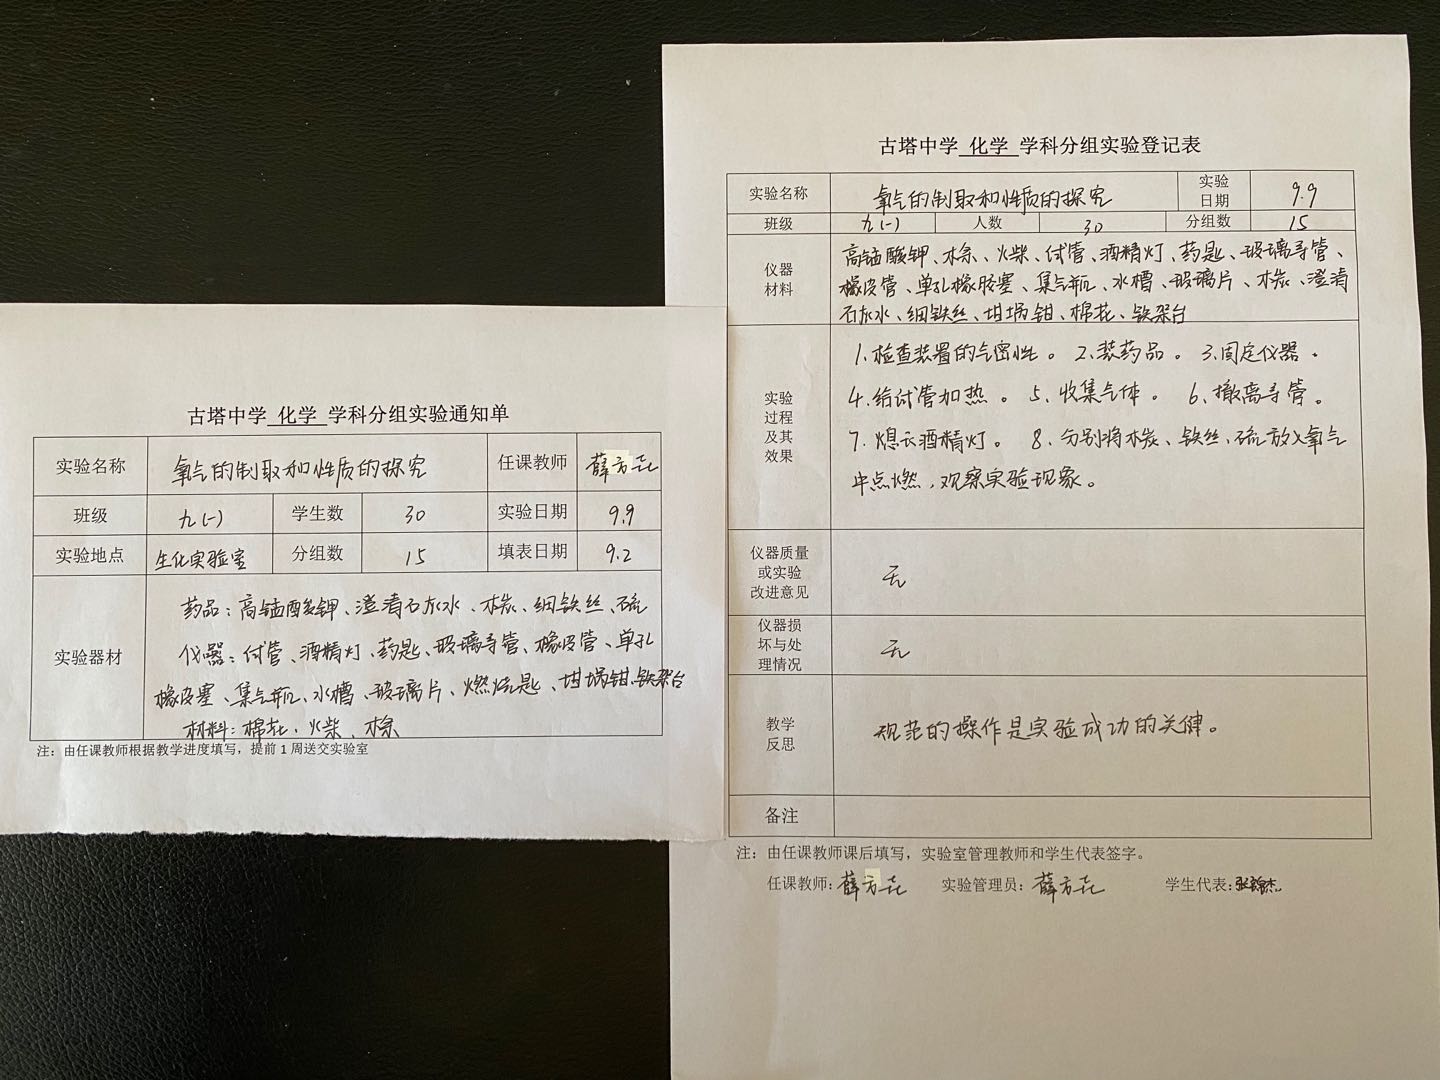 古塔中学 化学 学科分组实验通知单
实验名称 氧气的制取和性质的探究 任课教师
班级 九(一) 学生数 30 实验日期 9.9
实验地点 生化实验室 分组数 15 填表日期 9.2
实验器材
药品：高锰酸钾、澄清石灰水、木炭、细铁丝、硫
仪器：试管、酒精灯、药匙、玻璃导管、橡皮管、单孔
橡皮塞、集气瓶、水槽、玻璃片、燃烧匙、坩埚钳、铁架台
材料：棉花、火柴、木条
注：由任课教师根据教学进度填写，提前1周送交实验室
古塔中学 化学 学科分组实验登记表
实验名称 氧气的制取和性质的探究 实验日期 9.9
班级 九(一) 人数 30 分组数 15
仪器材料
高锰酸钾、木条、火柴、试管、酒精灯、药匙、玻璃导管、
橡皮管、单孔橡胶塞、集气瓶、水槽、玻璃片、木炭、澄清
石灰水、细铁丝、坩埚钳、棉花、铁架台
实验过程及其效果
1.检查装置的气密性。 2.装药品。 3.固定仪器。
4.给试管加热。 5.收集气体。 6.撤离导管。
7.熄灭酒精灯。 8.分别将木炭、铁丝、硫放入氧气
中点燃，观察实验现象。
仪器质量或实验改进意见 无
仪器损坏与处理情况 无
教学反思 规范的操作是实验成功的关键。
备注
注：由任课教师课后填写，实验室管理教师和学生代表签字。
任课教师： 实验管理员： 学生代表：